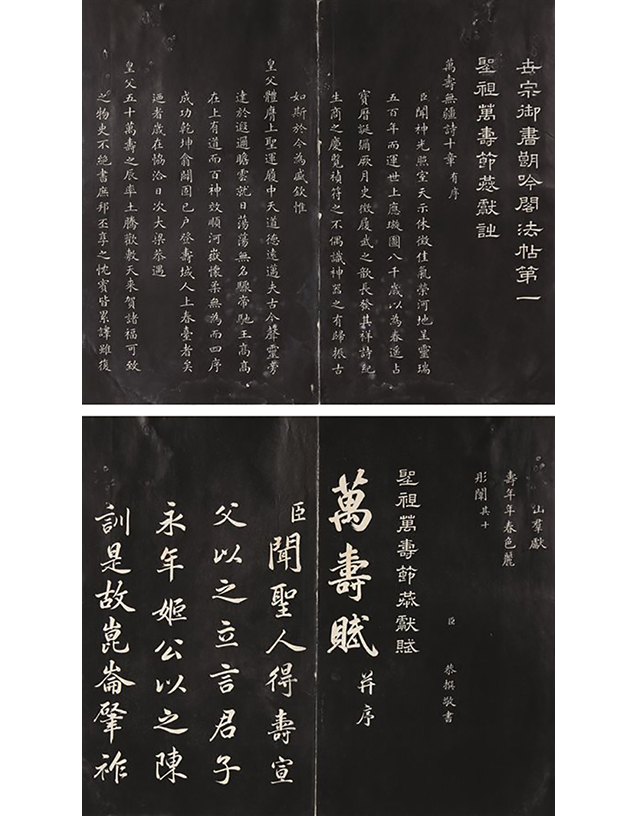 世宗御書朗吟閣法帖第一
聖祖萬壽節恭獻詩
萬壽無疆詩十章 有序
臣聞神光照室天示休徵佳氣榮河地呈靈瑞
五百年而運世上應璇圖八千歲以為春遥占
寶曆誕彌厥月史徵履武之歆長發其祥詩紀
生商之慶覽禎符之不偶識神器之有歸振古
如斯於今為盛欽惟
皇父體膺上聖運履中天道德遠邁夫古今聲靈旁
達於遐邇瞻雲就日蕩蕩無名驟帝馳王高高
在上有道而百神效順河嶽懷柔無為而四序
成功乾坤翕闢固已戶登壽域人上春臺者矣
廼者歲在協洽日次大梁恭遇
皇父五十萬壽之辰率土騰歡敷天來賀諸福可致
之物史不絶書庶邦丕享之忱賓皆累譯雖復
山羣獻
壽年年春色麗
彤闈其十
臣 恭撰敬書
聖祖萬壽節恭獻賦
萬壽賦 并序
臣聞聖人得壽宣
父以之立言君子
永年姬公以之陳
訓是故崑崙肇祚